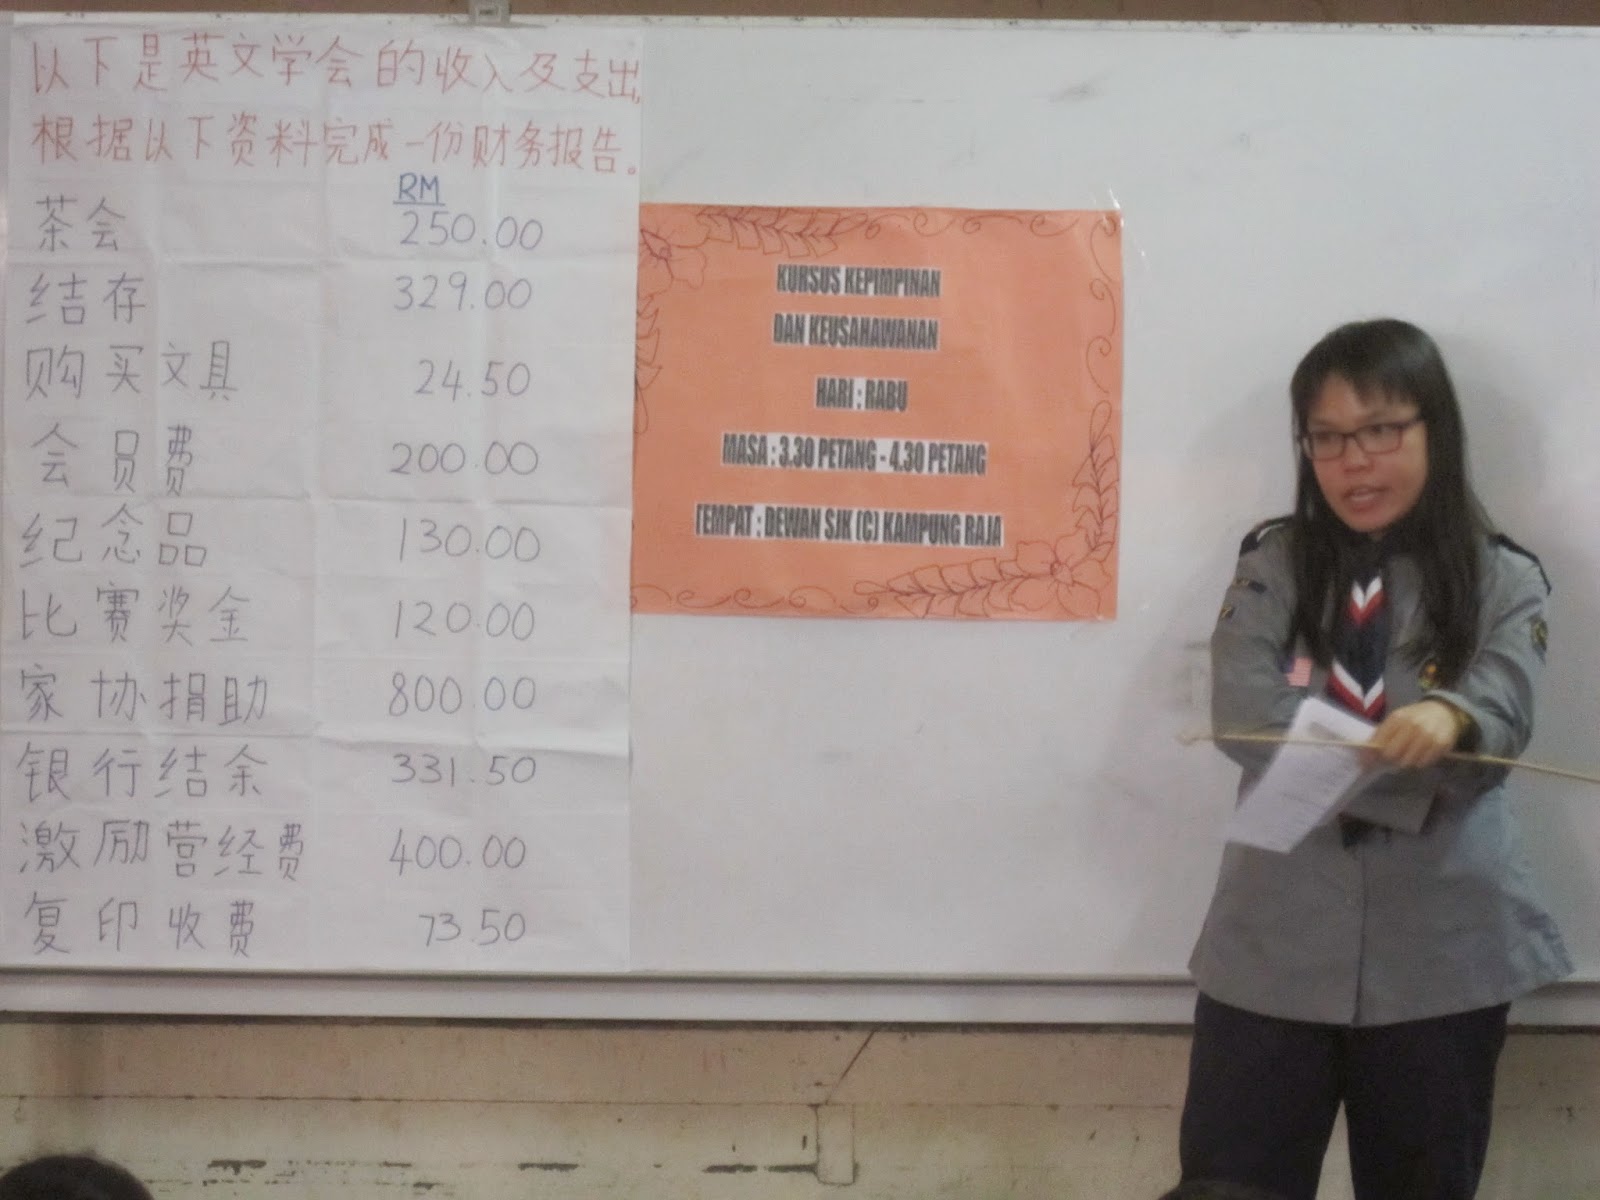 以下是英文学会的收入及支出,
根据以下资料完成一份财务报告。
RM
茶会 250.00
结存 329.00
购买文具 24.50
会员费 200.00
纪念品 130.00
比赛奖金 120.00
家协捐助 800.00
银行结余 331.50
激励营经费 400.00
复印收费 73.50
KURSUS KEPIMPINAN
DAN KEUSAHAWANAN
HARI : RABU
MASA : 3.30 PETANG - 4.30 PETANG
TEMPAT : DEWAN SJK (C) KAMPUNG RAJA